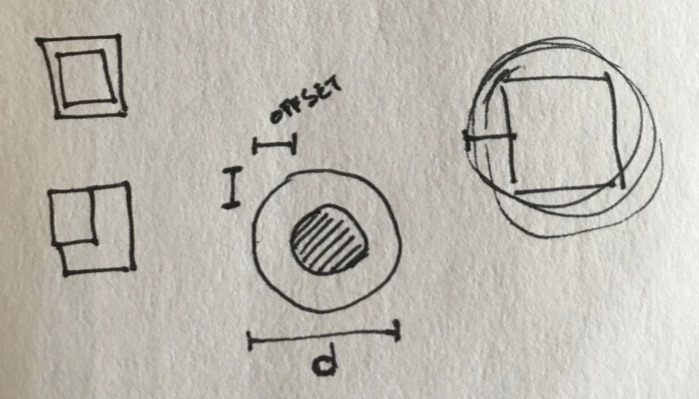 OFFSET
d